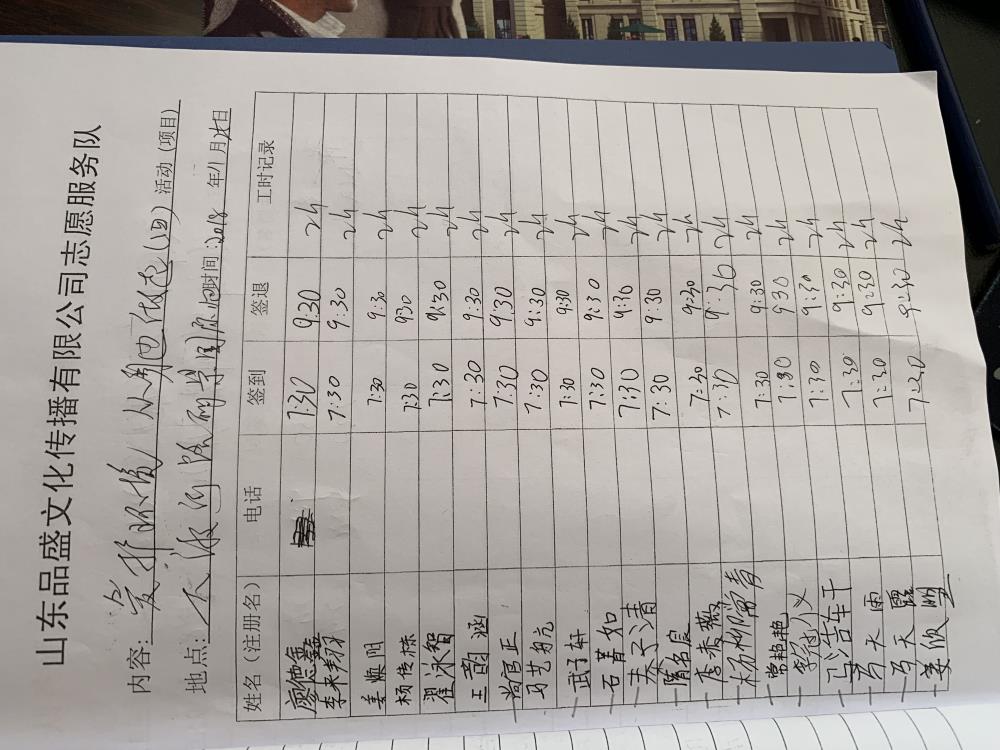 山东品盛文化传播有限公司志愿服务队
内容：爱护环境 从身边做起（四）活动（项目）
地点：大 学国际 时间：2018年11月 日
姓名（注册名） 电话 签到 签退 工时记录
廖德鑫 7:30 9:30 2h
李来翔 7:30 9:30 2h
姜焕明 7:30 9:30 2h
杨传栋 7:30 9:30 2h
翟泳智 7:30 9:30 2h
王韵涵 7:30 9:30 2h
尚官正 7:30 9:30 2h
马艺钧元 7:30 9:30 2h
武子轩 7:30 9:30 2h
石菁如 7:30 9:30 2h
秦子清 7:30 9:30 2h
隋名宸 7:30 9:30 2h
唐秀薇 7:30 9:30 2h
杨柳儒青 7:30 9:30 2h
常艳艳 7:30 9:30 2h
李冠义 7:30 9:30 2h
马浩车干 7:30 9:30 2h
马天雨 7:30 9:30 2h
马天露 7:30 9:30 2h
姜欣盟 7:30 9:30 2h